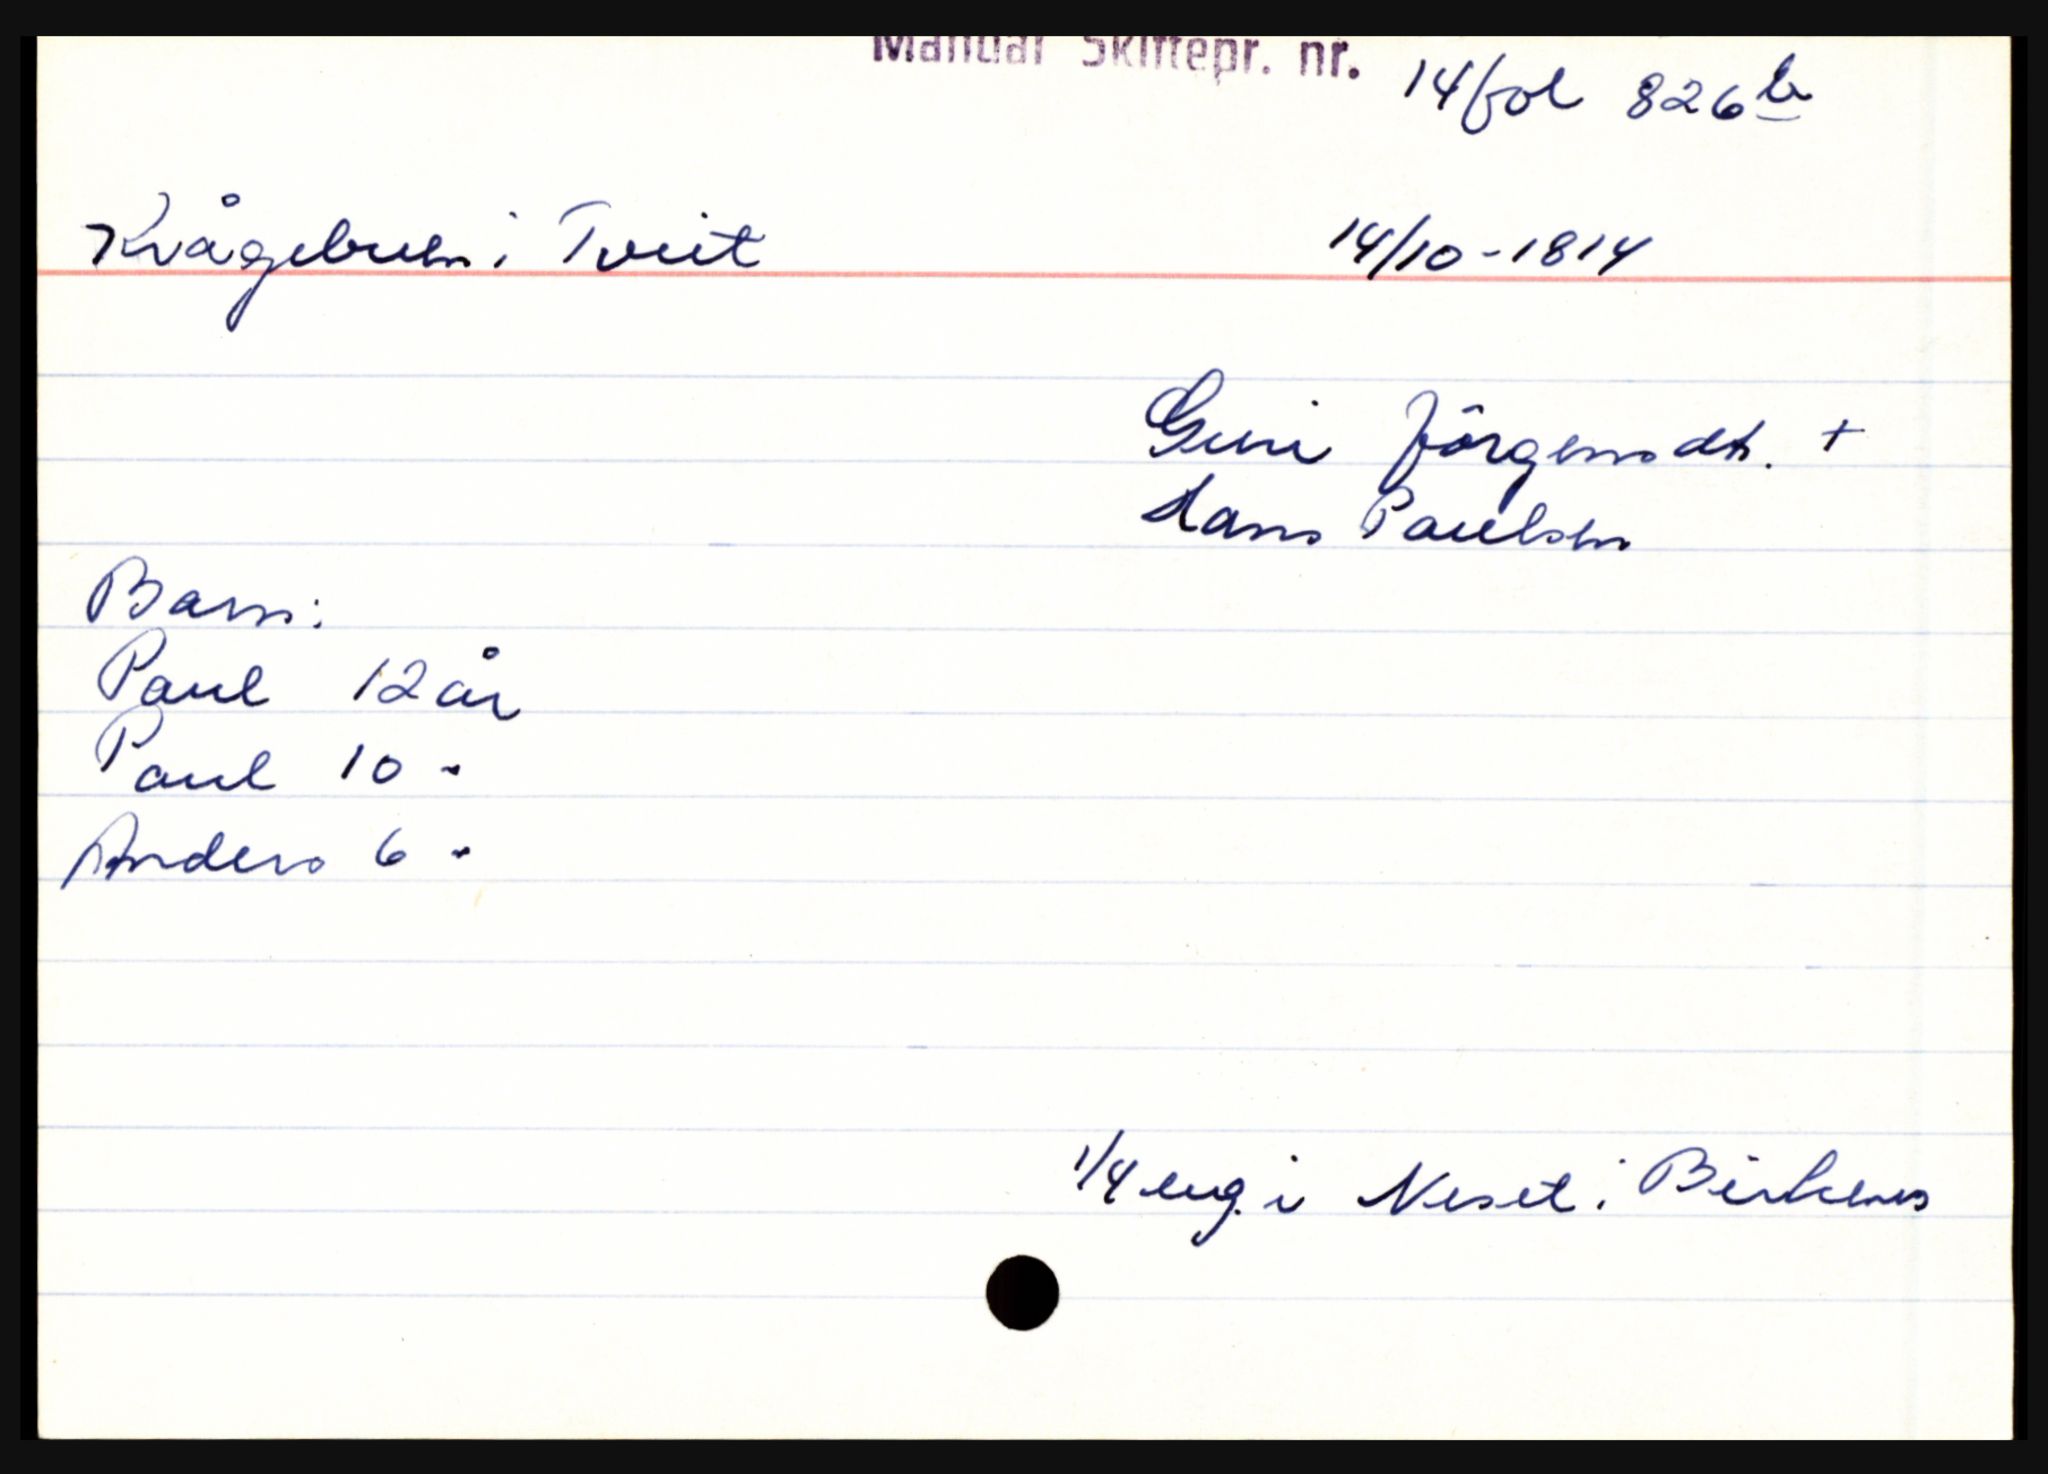 Manual Skiftepr. nr. 14 fol 826 b
Kvågebuen i Tveit 14/10-1814
Guri Jörgensdt. +
Hans Paulsen
Barn:
Paul 12 år
Paul 10 "
Anders 6 "
1/4 eng. i Neset i Birkenes